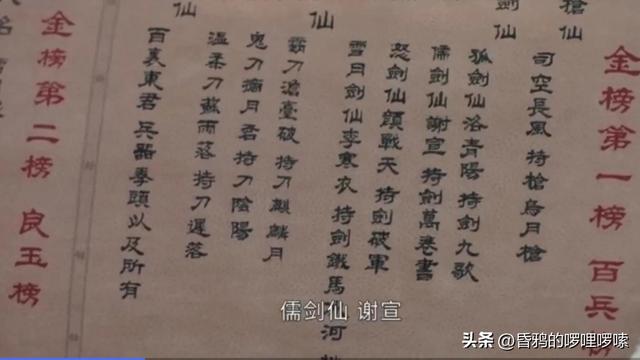 金榜第一榜 百兵
槍仙
司空長風 持槍烏月槍
劍仙
孤劍仙洛青陽 持劍九歌
儒劍仙謝宣 持劍萬卷書
怒劍仙顏戰天 持劍破軍
雪月劍仙李寒衣 持劍鐵馬河
仙
霸刀澹臺破 持刀麒麟月
鬼刀摘月君 持刀陰陽
溫柔刀蘇雨落 持刀遲落
仙
百裏東君 兵器拳頭以及所有
金榜第二榜 良玉榜
儒剑仙 谢宣
头条 @昏鸦的啰哩啰嗦